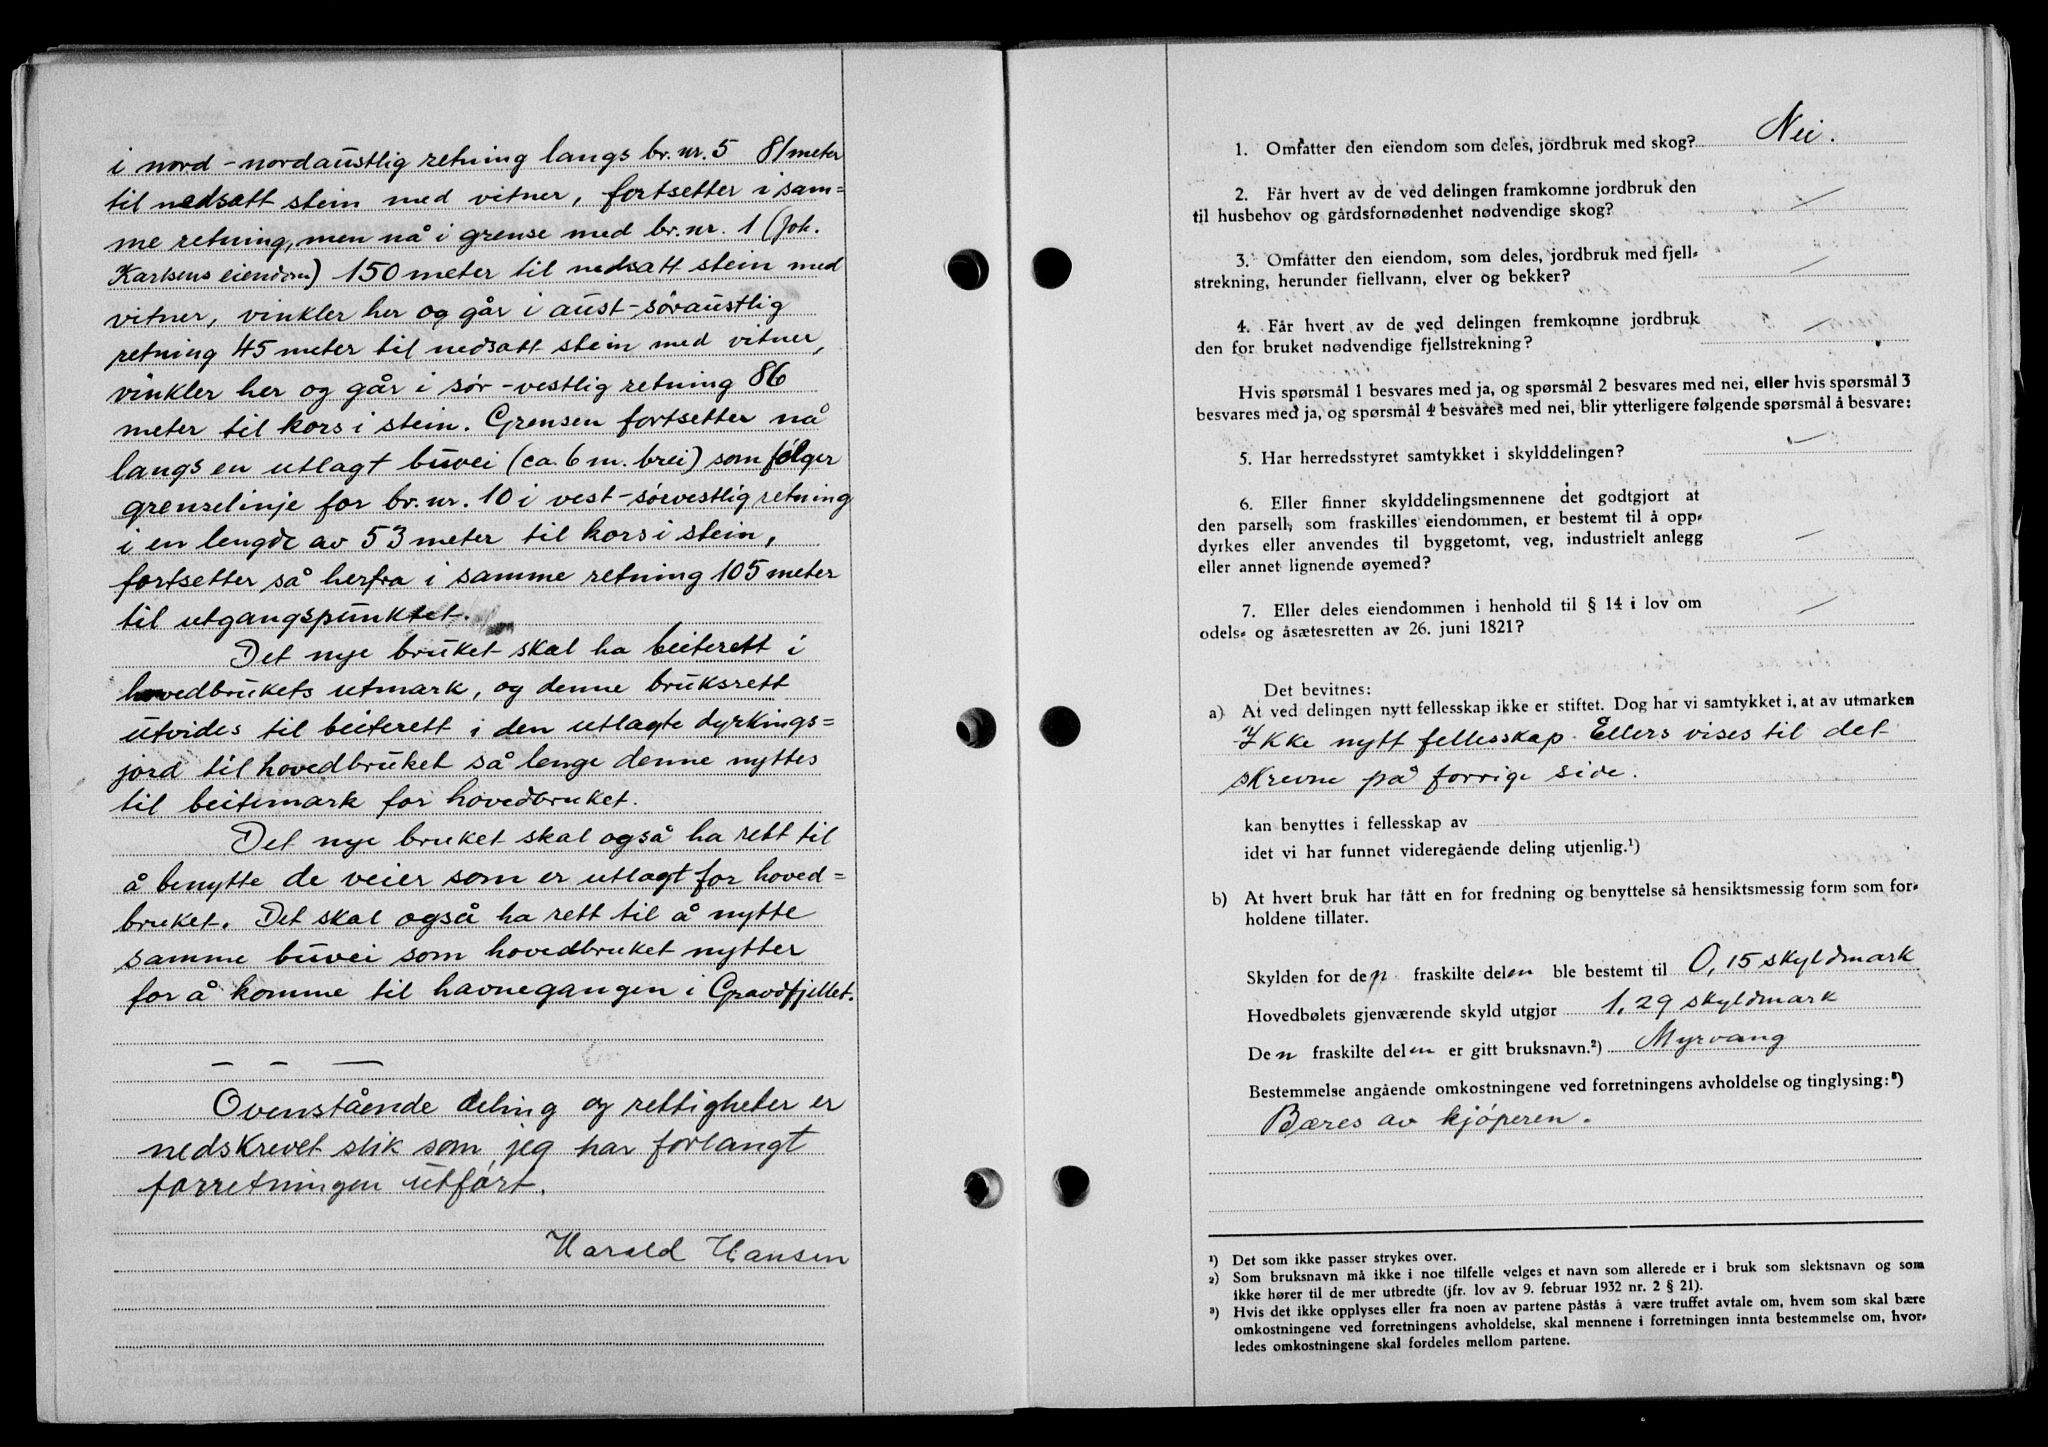 i nord-nordaustlig retning langs br.nr. 5 81 meter
til nedsatt stein med vitner, fortsetter i sam=
me retning, men nå i grense med br. nr. 1 (Joh.
Karlsens eiendom) 150 meter til nedsatt stein med
vitner, vinkler her og går i aust-søraustlig
retning 45 meter til nedsatt stein med vitner,
vinkler her og går i sør-vestlig retning 86
meter til kors i stein. Grensen fortsetter nå
langs en utlagt buvei (ca. 6 m. brei) som følger
grenselinje for br. nr. 10 i vest-sørvestlig retning
i en lengde av 53 meter til kors i stein,
fortsetter så herfra i samme retning 105 meter
til utgangspunktet.
Det nye bruket skal ha beiterett i
hovedbrukets utmark, og denne bruksrett
utvides til beiterett i den utlagte dyrkings=
jord til hovedbruket så lenge denne nyttes
til beitemark for hovedbruket.
Det nye bruket skal også ha rett til
å benytte de veier som er utlagt for hoved=
bruket. Det skal også ha rett til å nytte
samme buvei som hovedbruket nytter
for å komme til havnegangen i Gravdfjellet.
Ovenstående deling og rettigheter er
nedskrevet slik som jeg har forlangt
forretningen utført.
Harald Hansen
1. Omfatter den eiendom som deles, jordbruk med skog? Nei.
2. Får hvert av de ved delingen framkomne jordbruk den
til husbehov og gårdsfornødenhet nødvendige skog? /
3. Omfatter den eiendom, som deles, jordbruk med fjell-
strekning, herunder fiellvann, elver og bekker? /
4. Får hvert av de ved delingen fremkomne jordbruk
den for bruket nødvendige fjellstrekning? /
Hvis spørsmål 1 besvares med ja, og spørsmål 2 besvares med nei, eller hvis spørsmål 3
besvares med ja, og spørsmål 4 besvares med nei, blir ytterligere følgende spørsmål å besvare:
5. Har herredsstyret samtykket i skylddelingen? /
6. Eller finner skylddelingsmennene det godtgjort at
den parsell, som fraskilles eiendommen, er bestemt til å opp-
dyrkes eller anvendes til byggetomt, veg, industrielt anlegg
eller annet lignende øyemed? /
7. Eller deles eiendommen i henhold til § 14 i lov om
odels- og åsætesretten av 26. juni 1821? /
Det bevitnes:
a) At ved delingen nytt fellesskap ikke er stiftet. Dog har vi samtykket i, at av utmarken
Ikke nytt fellesskap. Ellers vises til det
skrevne på forrige side.
kan benyttes i fellesskap av
idet vi har funnet videregående deling utjenlig.¹)
b) At hvert bruk har fått en for fredning og benyttelse så hensiktsmessig form som for-
holdene tillater.
Skylden for den fraskilte delen ble bestemt til 0,15 skyldmark
Hovedbølets gjenværende skyld utgjør 1,29 skyldmark
Den fraskilte delen er gitt bruksnavn.²) Myrvang
Bestemmelse angående omkostningene ved forretningens avholdelse og tinglysing:³)
Bæres av kjøperen.
¹) Det som ikke passer strykes over.
²) Som bruksnavn må ikke i noe tilfelle velges et navn som allerede er i bruk som slektsnavn og som
ikke hører til de mer utbredte (jfr. lov av 9. februar 1932 nr. 2 § 21).
³) Hvis det ikke opplyses eller fra noen av partene påstås å være truffet avtale om, hvem som skal bære
omkostningene ved forretningens avholdelse, skal mennene i forretningen innta bestemmelse om, hvor-
ledes omkostningene skal fordeles mellom partene.